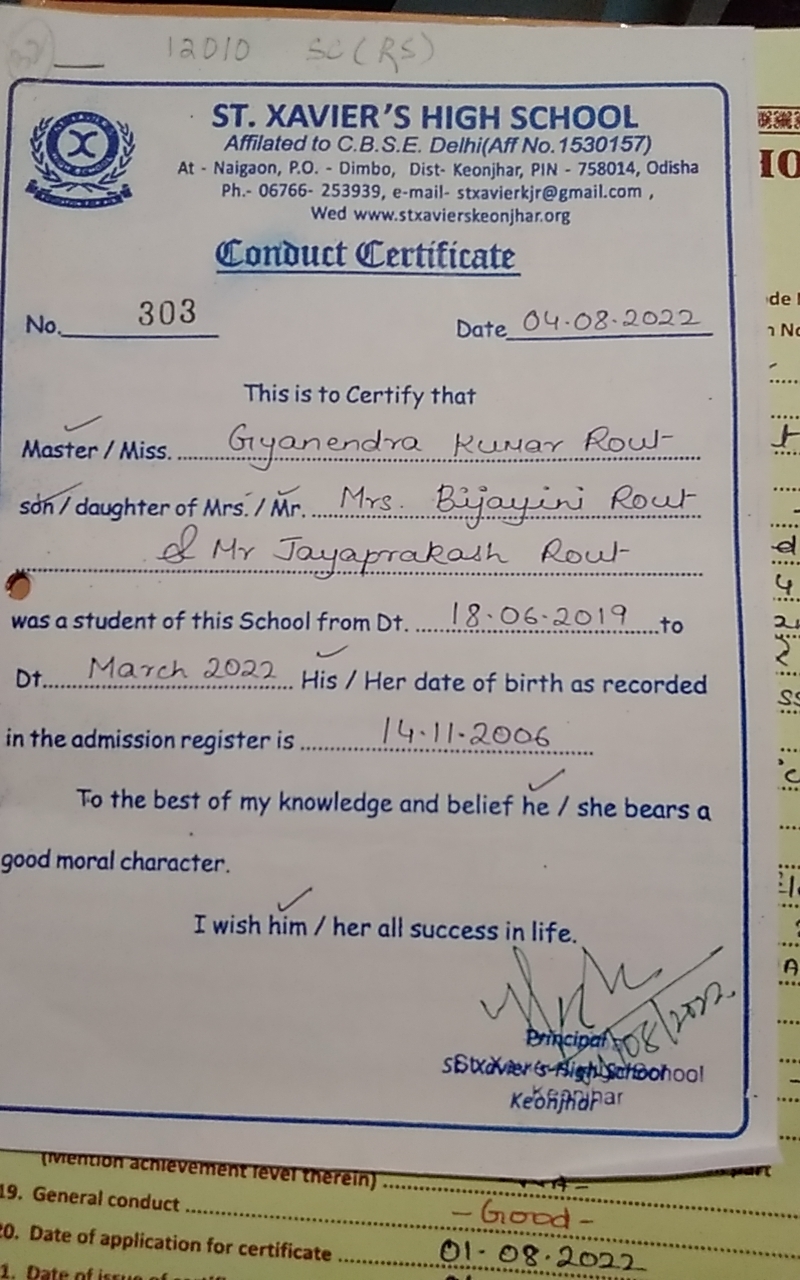 12010 SC (RS)
ST. XAVIER'S HIGH SCHOOL
Affilated to C.B.S.E. Delhi(Aff No.1530157)
At - Naigaon, P.O. - Dimbo, Dist- Keonjhar, PIN - 758014, Odisha
Ph.- 06766- 253939, e-mail- stxavierkjr@gmail.com ,
Wed www.stxavierskeonjhar.org
Conduct Certificate
No. 303 Date 04.08.2022
This is to Certify that
Master / Miss. Gyanendra Kumar Rout
son / daughter of Mrs. / Mr. Mrs. Bijayini Rout
& Mr Jayaprakash Rout
was a student of this School from Dt. 18.06.2019 to
Dt. March 2022 His / Her date of birth as recorded
in the admission register is 14.11.2006
To the best of my knowledge and belief he / she bears a
good moral character.
I wish him / her all success in life.
08/2022
Principal
St. Xavier's High School
Keonjhar
(Mention achievement level therein) -NA-
19. General conduct - Good -
20. Date of application for certificate 01.08.2022